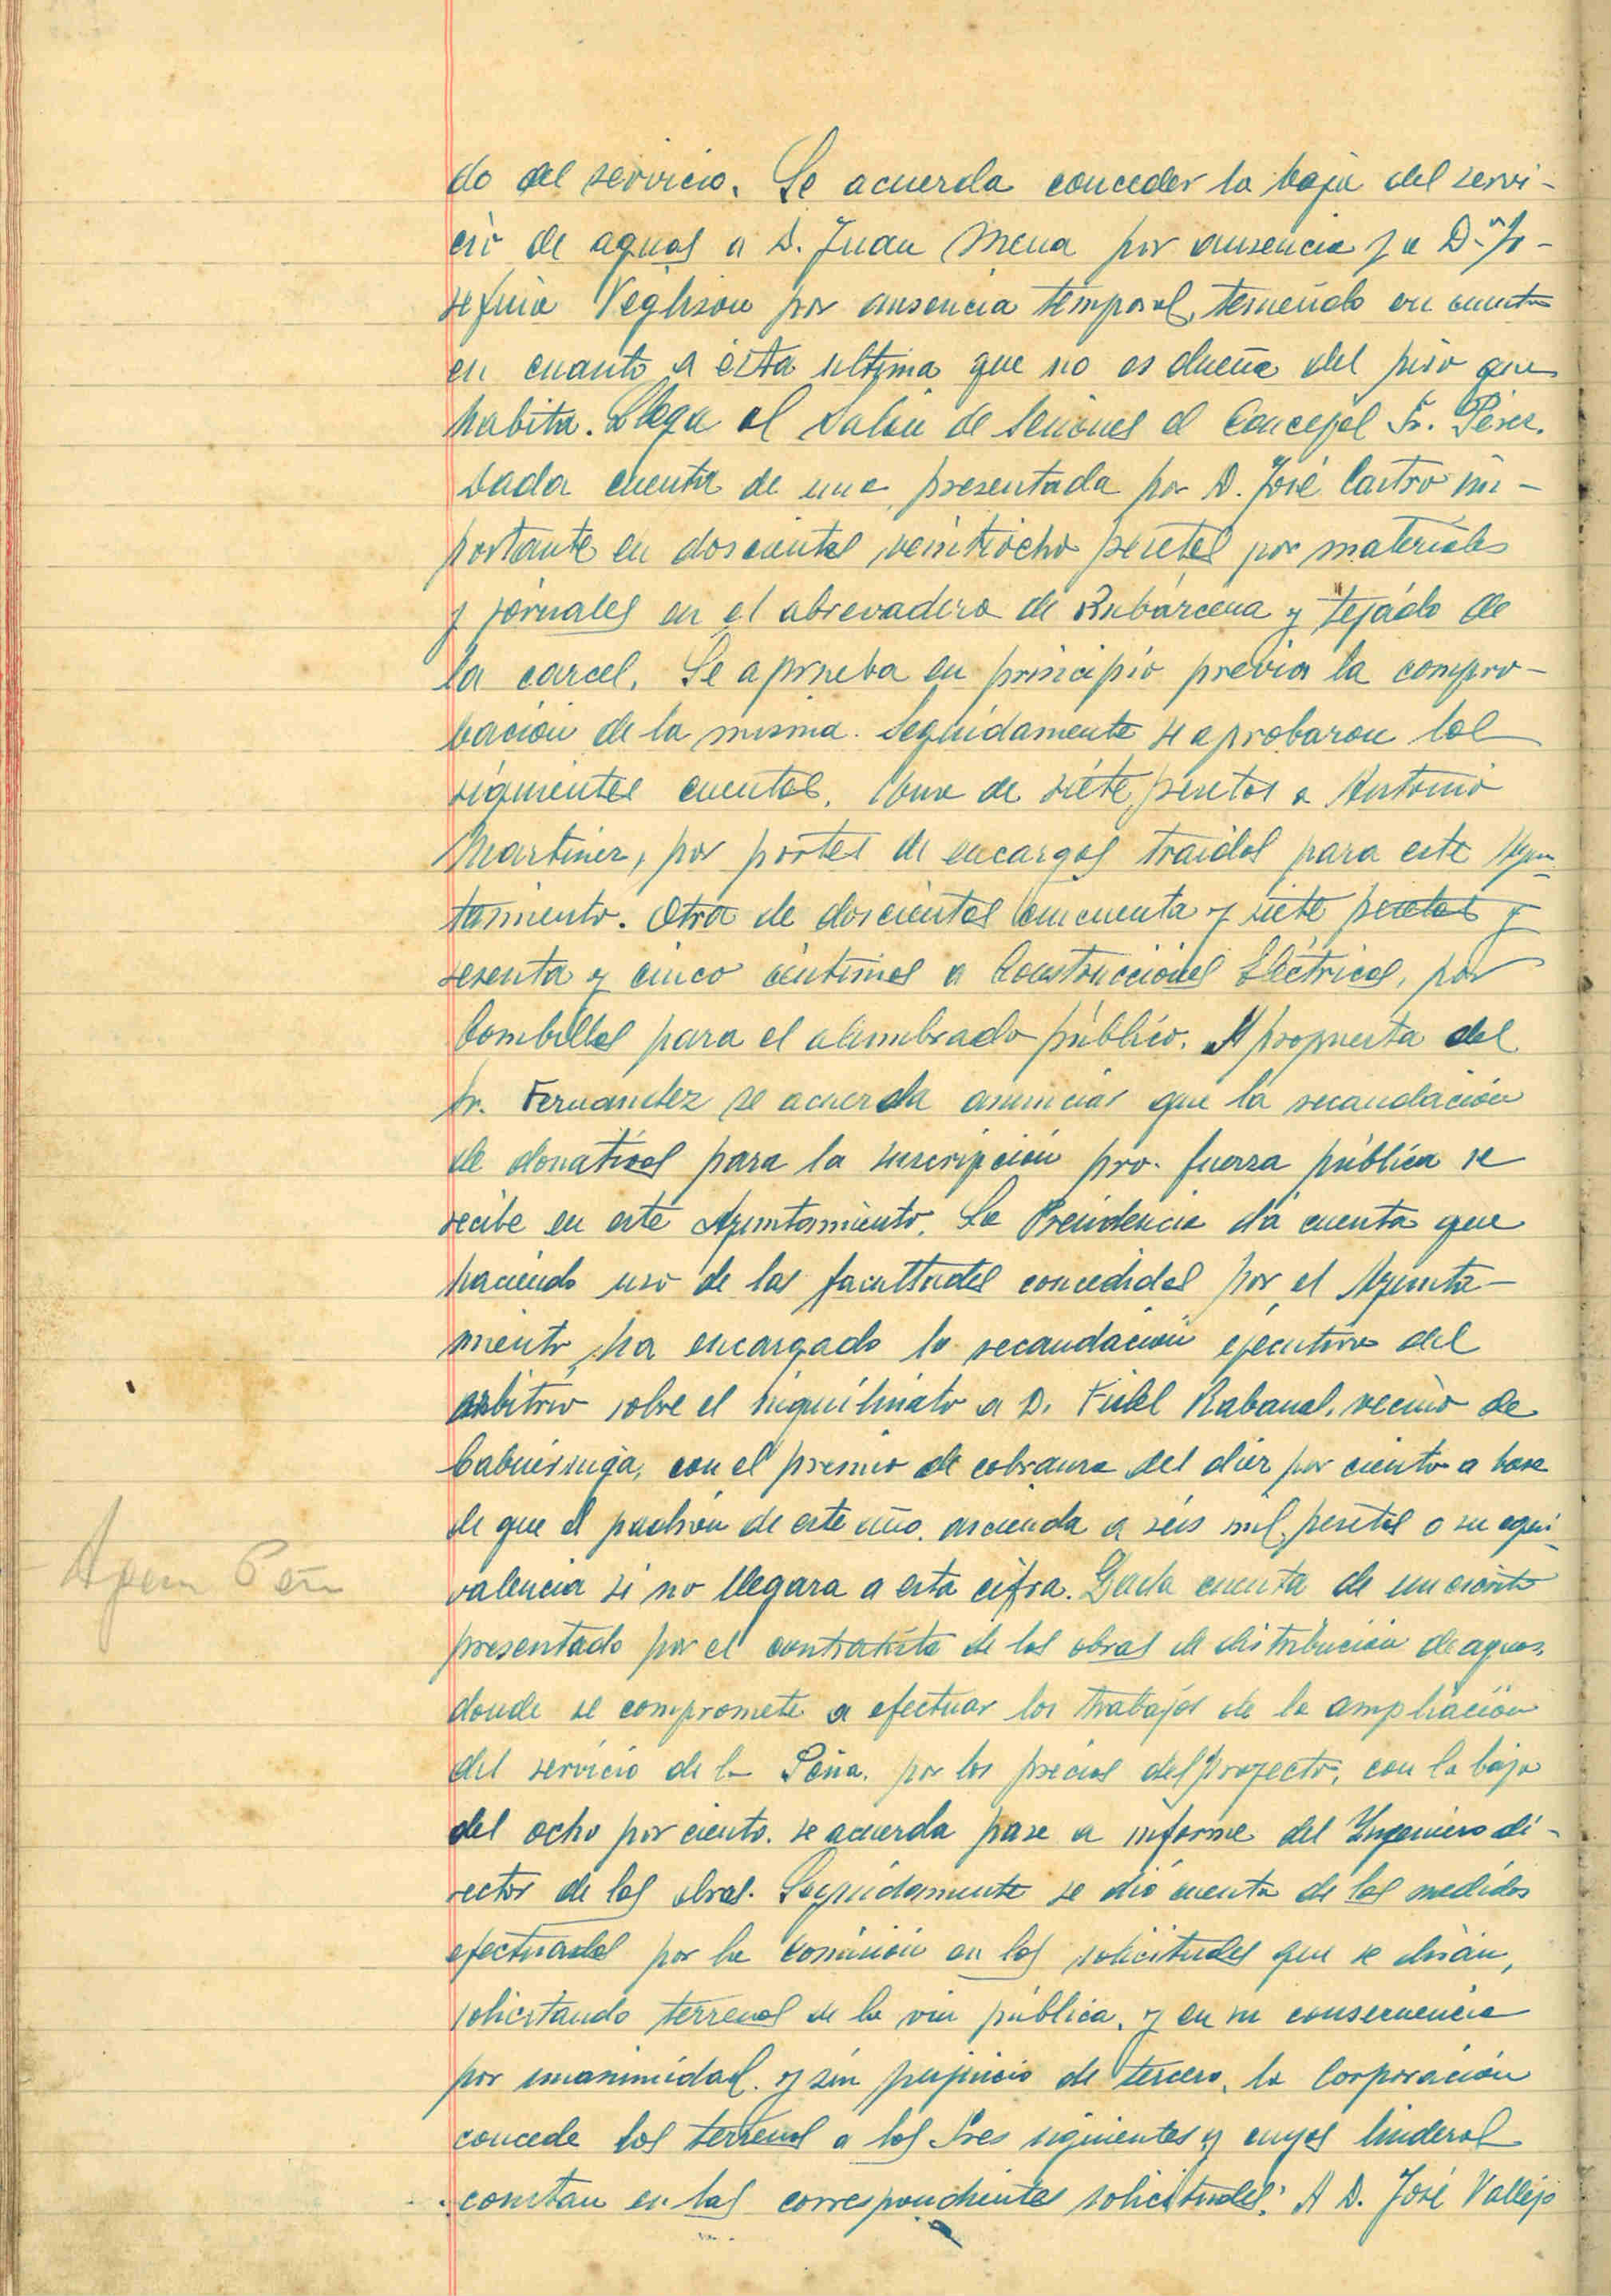 do del servicio. Se acuerda conceder la baja del servi-
cio de aguas a D. Juan Mena por ausencia y a Dª Jo-
sefina por ausencia temporal, teniendo en cuenta
en cuanto a ésta ultima que no es dueña del piso que
habita. Llega al Salón de Sesiones el Concejal Sr. Pérez.
Dada cuenta de una presentada por D. José Castro im-
portante en doscientas veintiocho pesetas por materiales
y jornales en el abrevadero de Rubárcena y tejado de
la carcel. Se aprueba en principio previa la compro-
bación de la misma. Seguidamente se aprobaron las
siguientes cuentas. Una de siete pesetas a Antonio
Martínez, por portes de encargos traidos para este Ayun-
tamiento. Otra de doscientas cincuenta y siete pesetas y
sesenta y cinco céntimos a Construcciones Eléctricas, por
bombillas para el alumbrado público. A propuesta del
Sr. Fernandez se acuerda anunciar que la recaudación
de donativos para la suscripción pro-fuerza pública se
recibe en este Ayuntamiento. La Presidencia dá cuenta que
haciendo uso de las facultades concedidas por el Ayunta-
miento, ha encargado la recaudación ejecutiva del
arbitrio sobre el inquilinato a D. Fidel Rabanal, vecino de
Cabuérniga, con el premio de cobranza del diez por ciento a base
de que el padrón de este año, ascienda a seis mil pesetas o su equi-
valencia si no llegara a esta cifra. Dada cuenta de un escrito
presentado por el contratista de las obras de distribución de aguas,
donde se compromete a efectuar los trabajos de la ampliación
del servicio de la Peña, por los precios del proyecto, con la baja
del ocho por ciento. se acuerda pase a informe del Ingeniero di-
rector de las obras. Seguidamente se dió cuenta de las medidas
efectuadas por la Comisión en las solicitudes que se dirán,
solicitando terrenos de la via pública, y en su consecuencia
por unanimidad y sin perjuicio de tercero, la Corporación
concede los terrenos a los Sres siguientes y cuyos linderos
constan en las correspondientes solicitudes: A D. José Vallejo